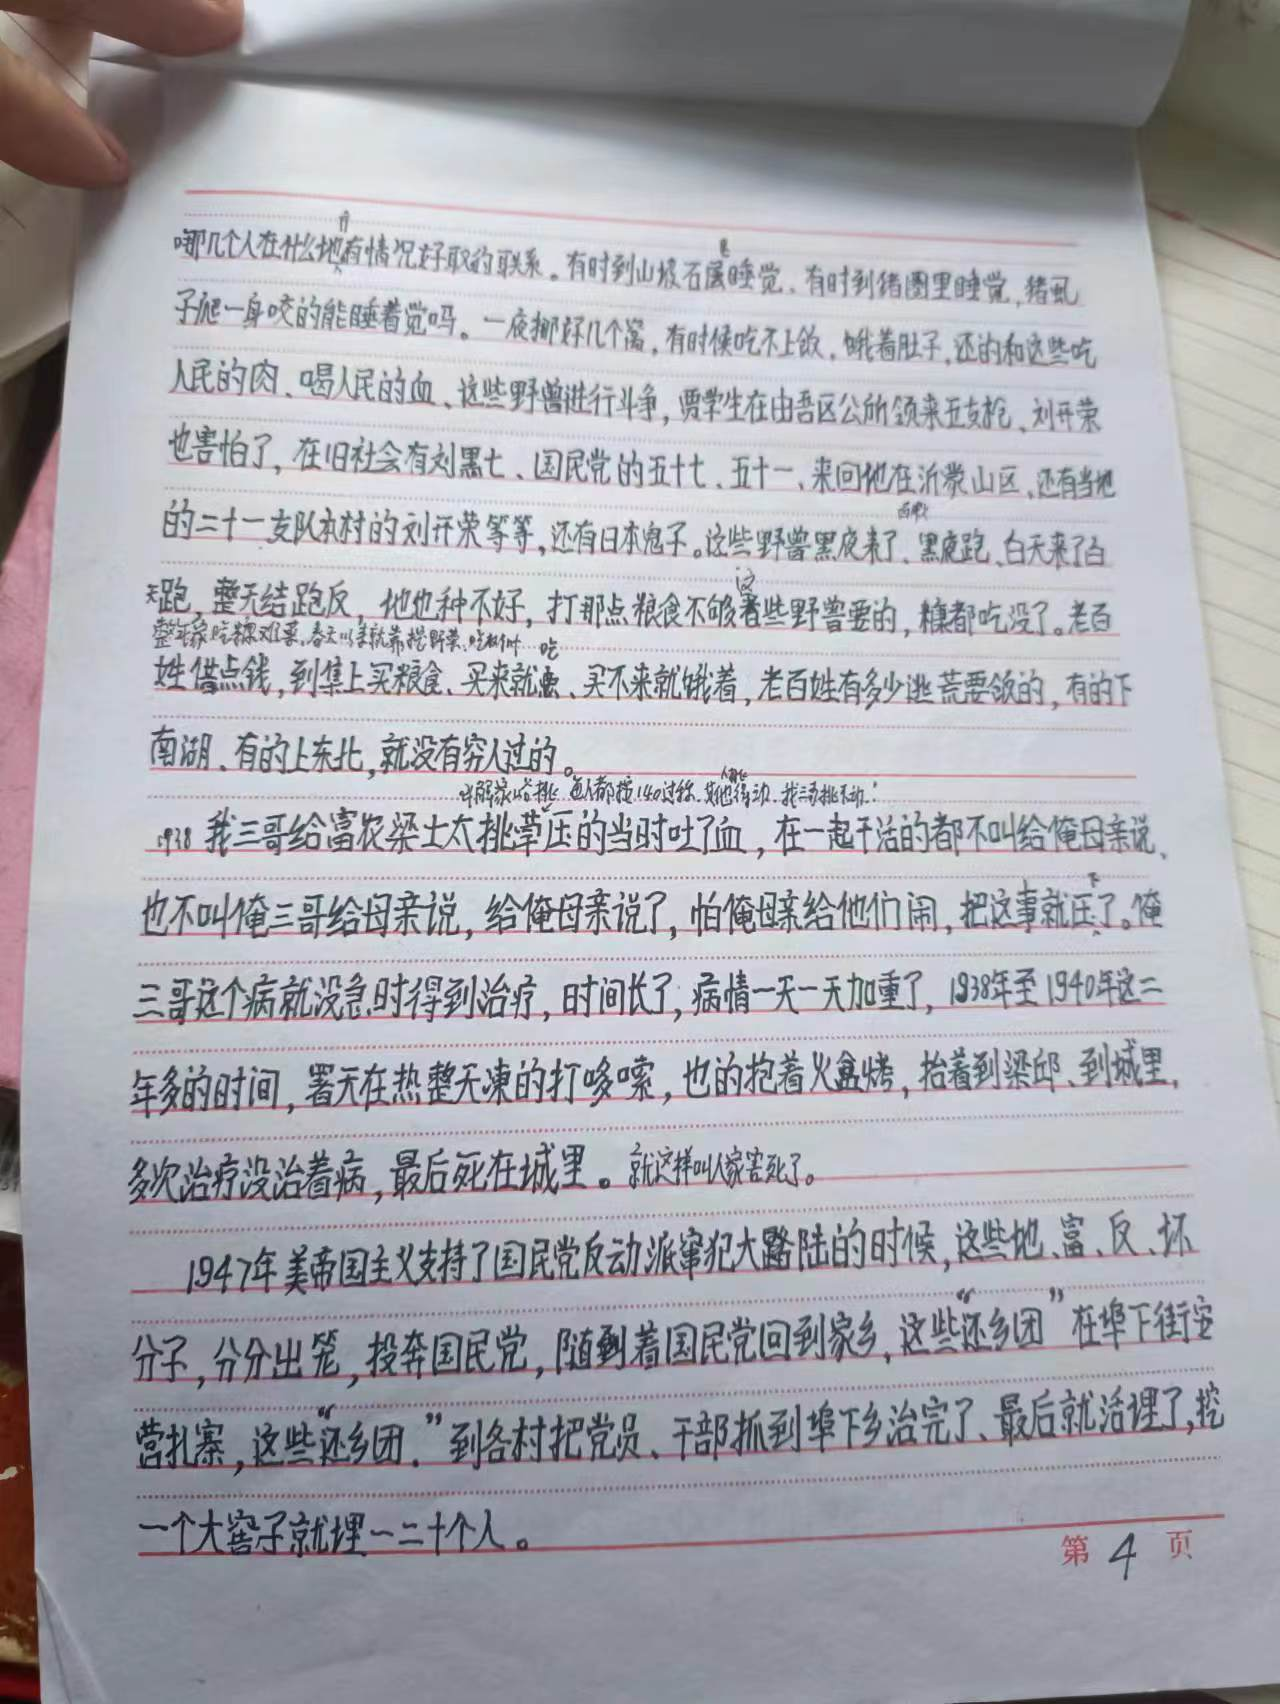 方
哪几个人在什么地有情况好取的联系。有时到山坡石屋睡觉、有时到猪圈里睡觉,猪虱
子爬一身咬的能睡着觉吗。一夜挪好几个窝,有时候吃不上饭,饿着肚子,还的和这些吃
人民的肉、喝人民的血、这些野兽进行斗争,贾学生在由吾区公所领来五支枪、刘开荣
也害怕了,在旧社会有刘黑七、国民党的五十七、五十一、来回他在沂蒙山区、还有当地
的二十一支队本村的刘开荣等等,还有日本鬼子。这些野兽黑夜来了、黑夜跑、白天来了白
这
天跑,整天结跑反,地也种不好,打那点粮食不够着些野兽要的,糠都吃没了。老百
吃
姓借点钱,到集上买粮食、买来就、买不来就饿着,老百姓有多少逃荒要饭的,有的下
南湖、有的上东北,就没有穷人过的。
1938 我三哥给富农梁士太挑草压的当时吐了血,在一起干活的都不叫给俺母亲说、
下
也不叫俺三哥给母亲说,给俺母亲说了,怕俺母亲给他们闹,把这事就压了。俺
三哥这个病就没急时得到治疗,时间长了,病情一天一天加重了,1938年至1940年这二
年多的时间,署天在热整天凍的打哆嗦,也的抱着火盆烤,抬着到梁邱、到城里,
多次治疗没治着病,最后死在城里。就这样叫人家害死了。
1947年美帝国主义支持了国民党反动派窜犯大路陆的时候,这些地、富、反、坏
分子,分分出笼,投奔国民党,随到着国民党回到家乡,这些“还乡团”在埠下街安
营扎寨,这些“还乡团.”到各村把党员、干部抓到埠下乡治完了、最后就活埋了,挖
一个大窖子就埋一二十个人。
第 4 页